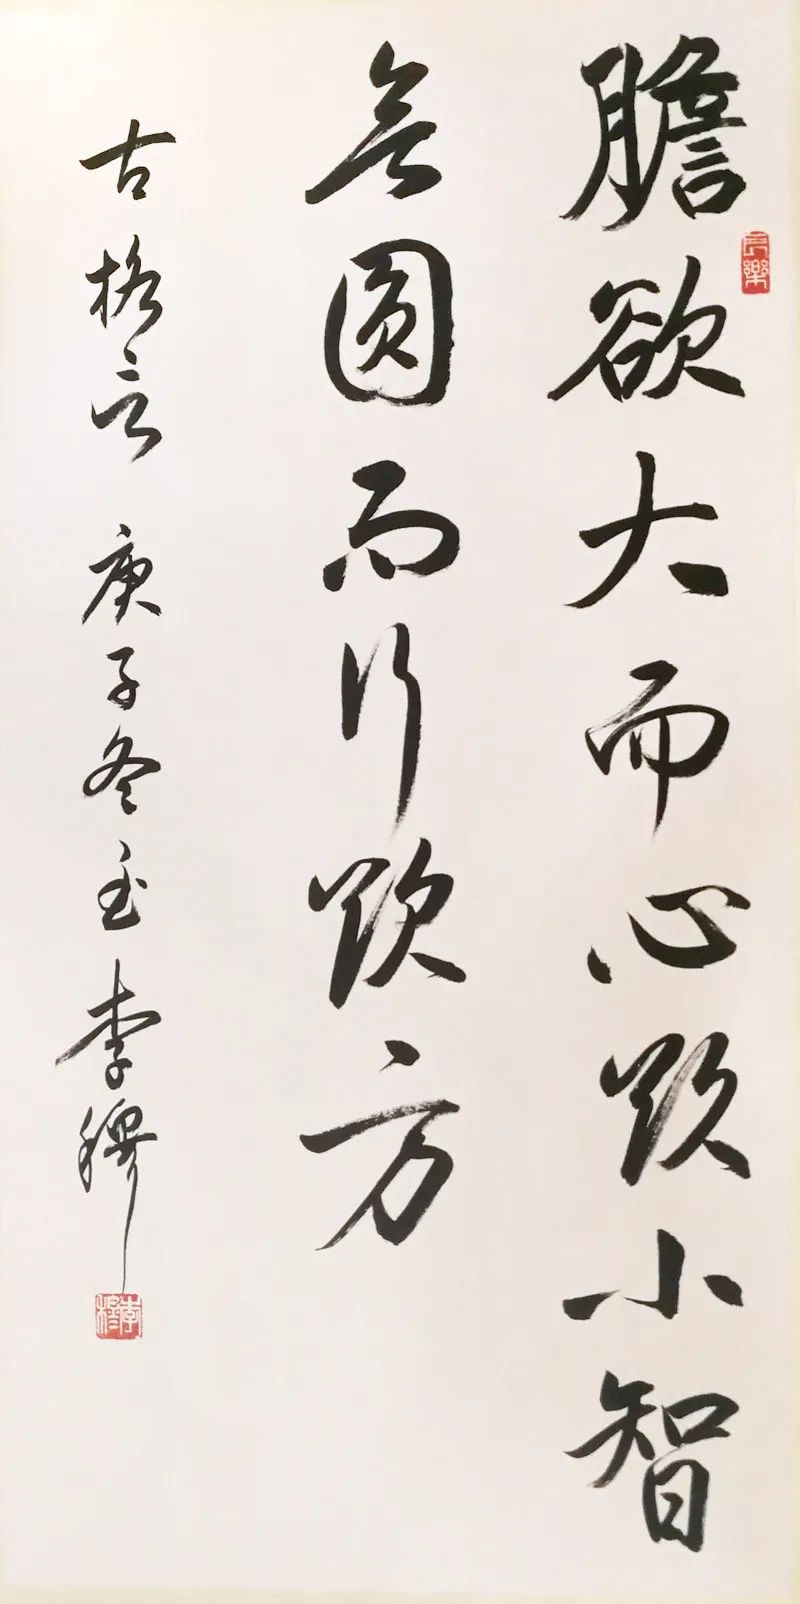 膽欲大而心欲小智
欲圓而行欲方
古格言 庚子冬至 李穆